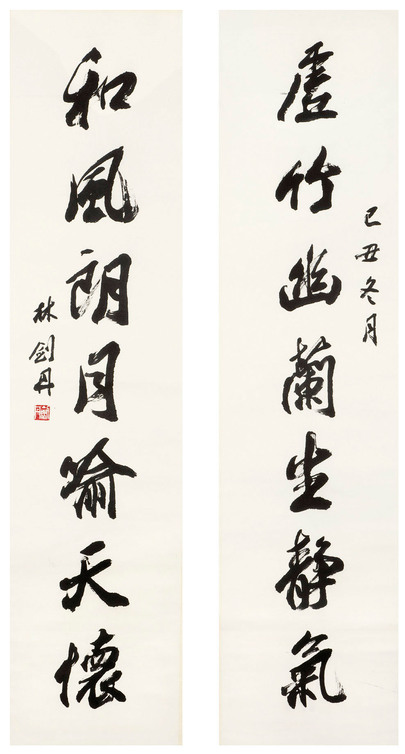 虛竹幽蘭生靜氣
己丑冬月
和風朗月喻天懷
林劍丹